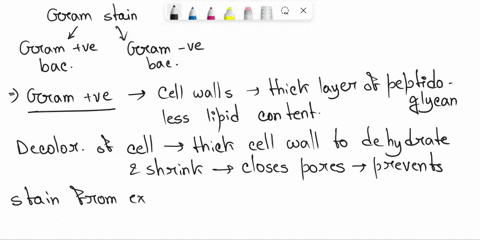 Gram stain
Gram +ve Gram -ve
bac. bac.
⇒ Gram +ve → Cell walls → thick layer of peptido-
glycan
less lipid content.
Decolor. of cell → thick cell wall to dehydrate
& shrink → closes pores → prevents
stain from ex